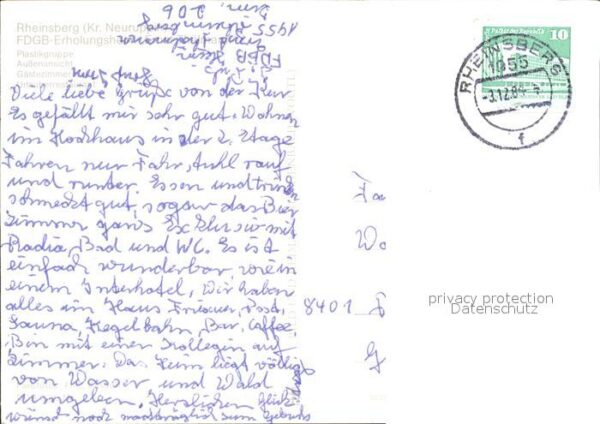 Rheinsberg (Kr. Neuruppin)
FDGB-Erholungsheim
Plastikgruppe
Außenansicht
Gästezimmer
Zim. 206
1955 Rheinsberg
FDGB Heim
Viele liebe Grüße von der Kur
Es gefällt mir sehr gut. Wohnen
im Hochhaus in der 2. Etage
Fahren nur Fahrstuhl rauf
und runter. Essen und trinken
schmeckt gut, sogar das Bier
Zimmer ganz Exklusiv mit
Radio, Bad und WC. Es ist
einfach wunderbar, wie in
einem Interhotel, Wir haben
alles im Haus Friseur, Post,
Sauna, Kegelbahn, Bar, Caffee
Bin mit einer Kollegin auf
Zimmer. Das Heim liegt völlig
von Wasser und Wald
umgeben. Herzlichen Glück
wunsch noch nachträglich zum Geburts
Fa
Wo
8401
G
10
RHEINSBERG
1955
-3.12.8
f
privacy protection
Datenschutz